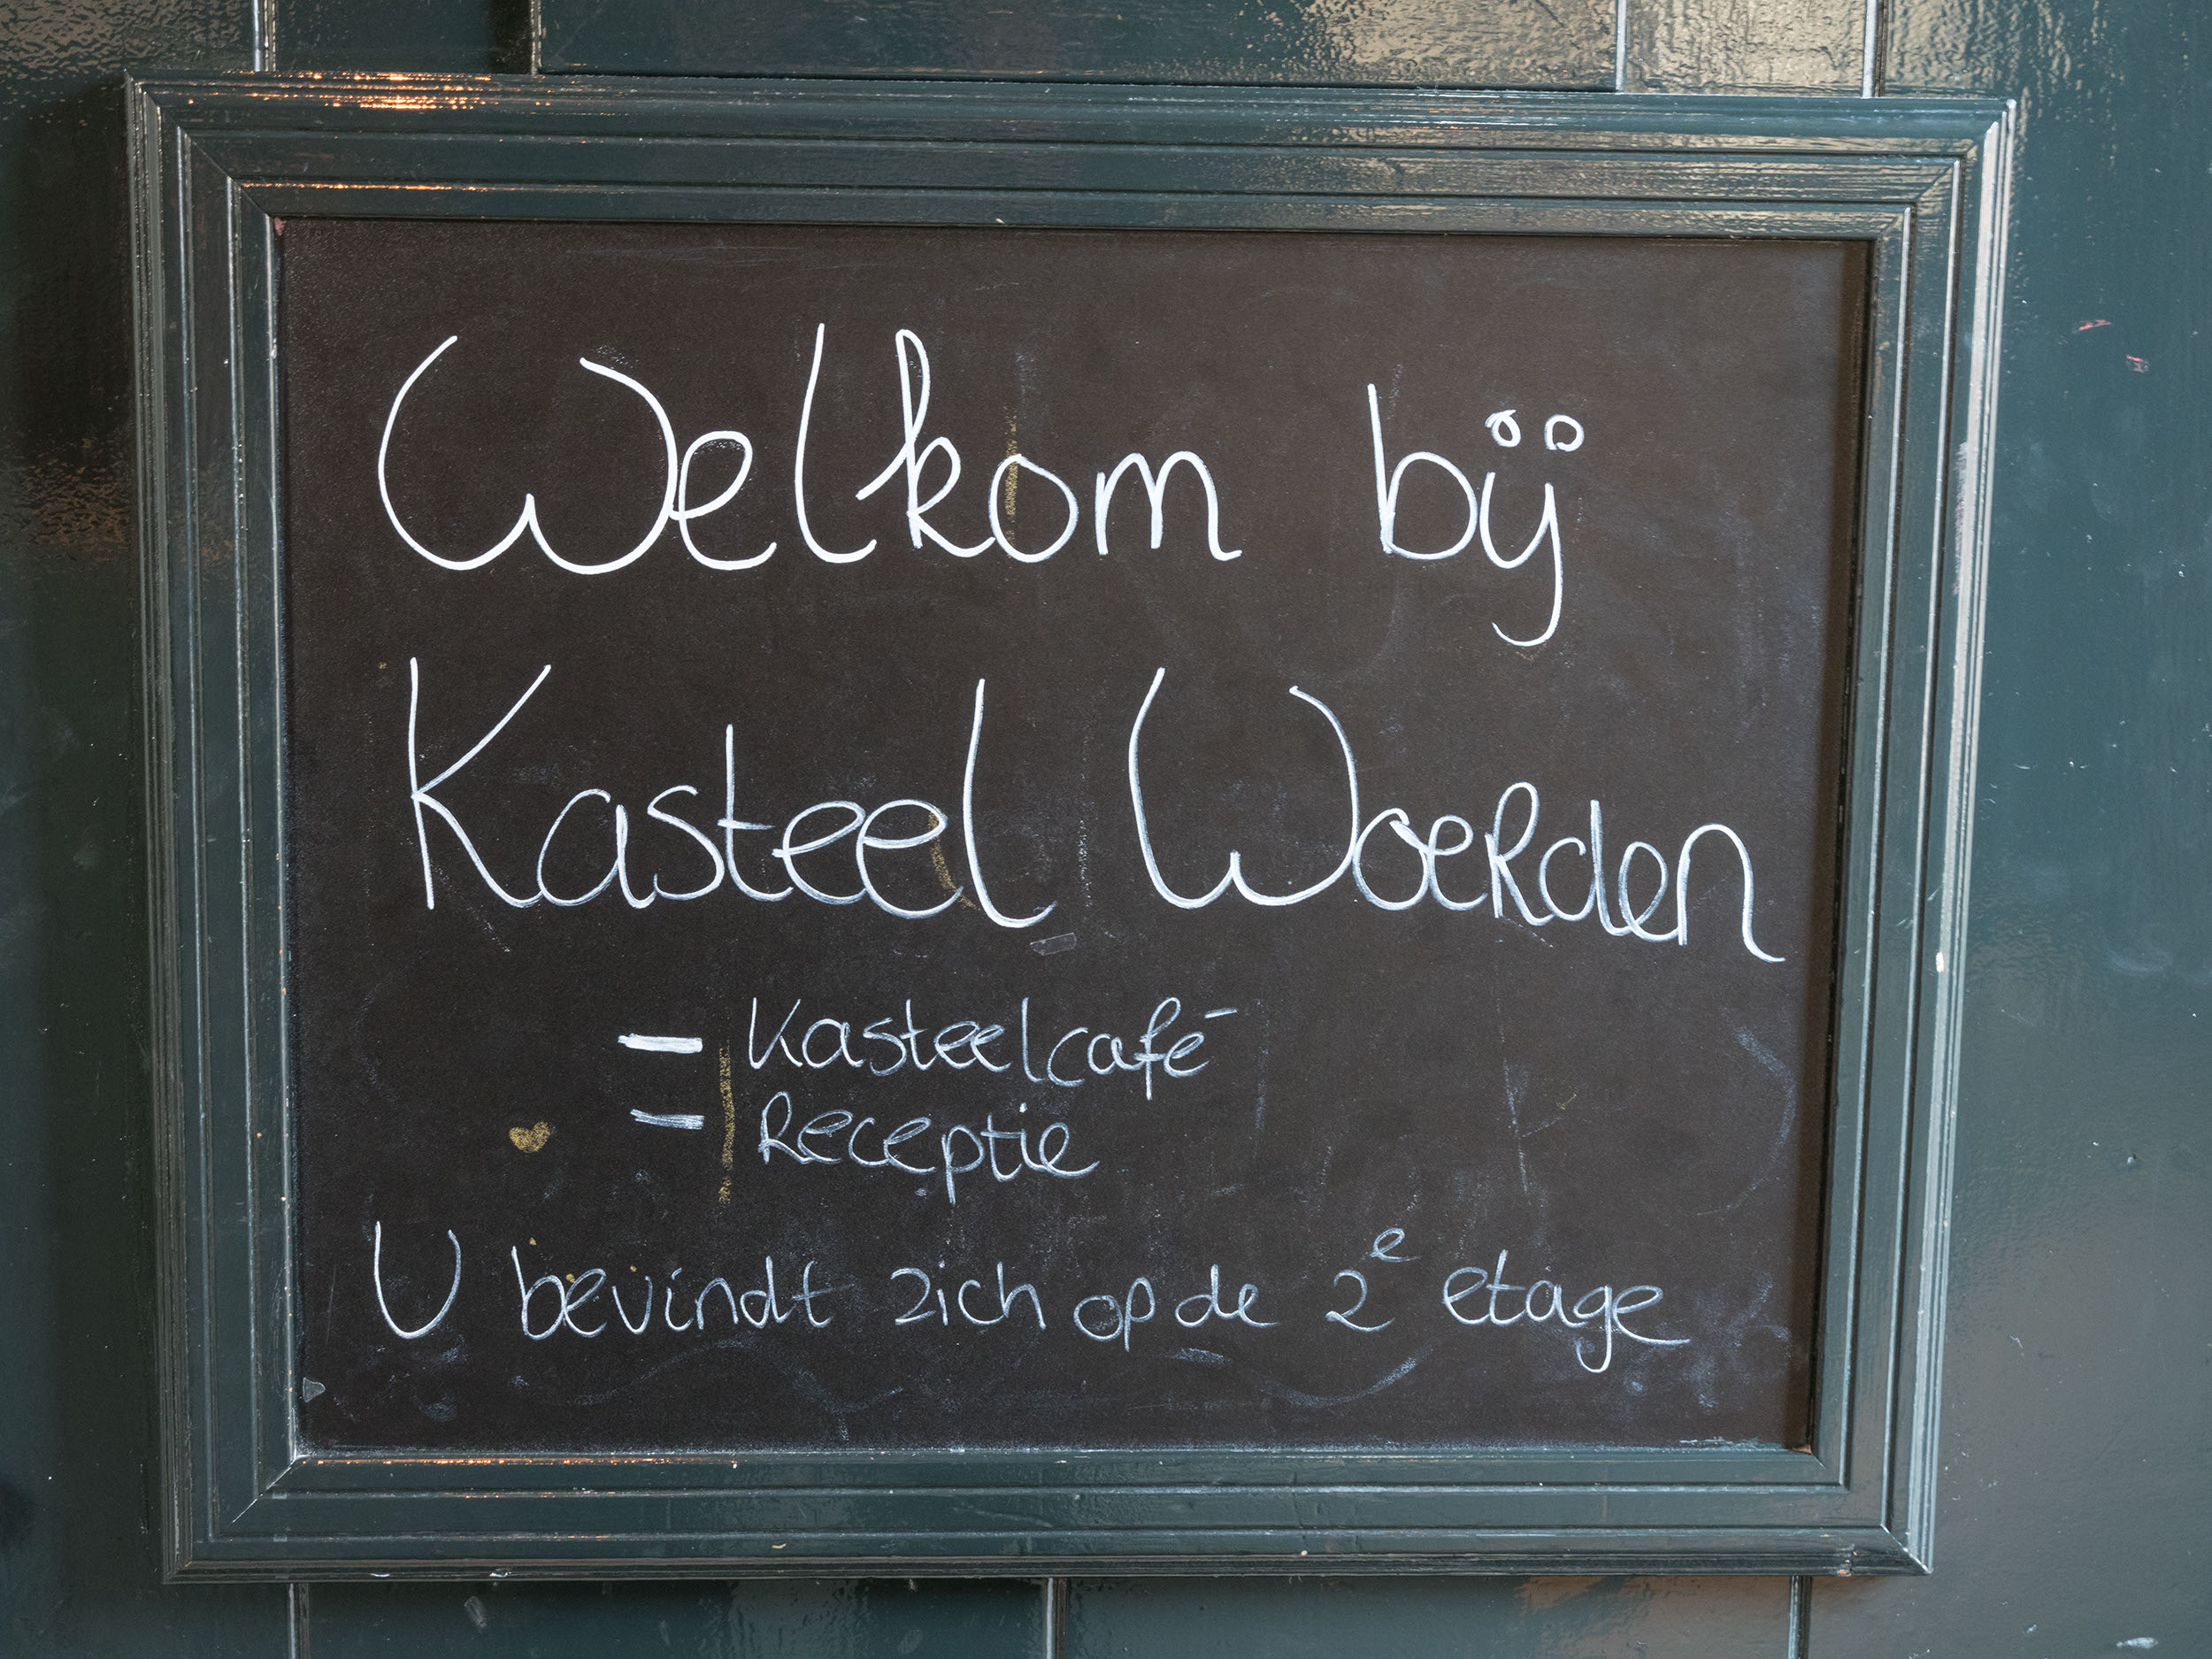 Welkom bij
Kasteel Woerden
- Kasteelcafé
- Receptie
U bevindt zich op de 2e etage